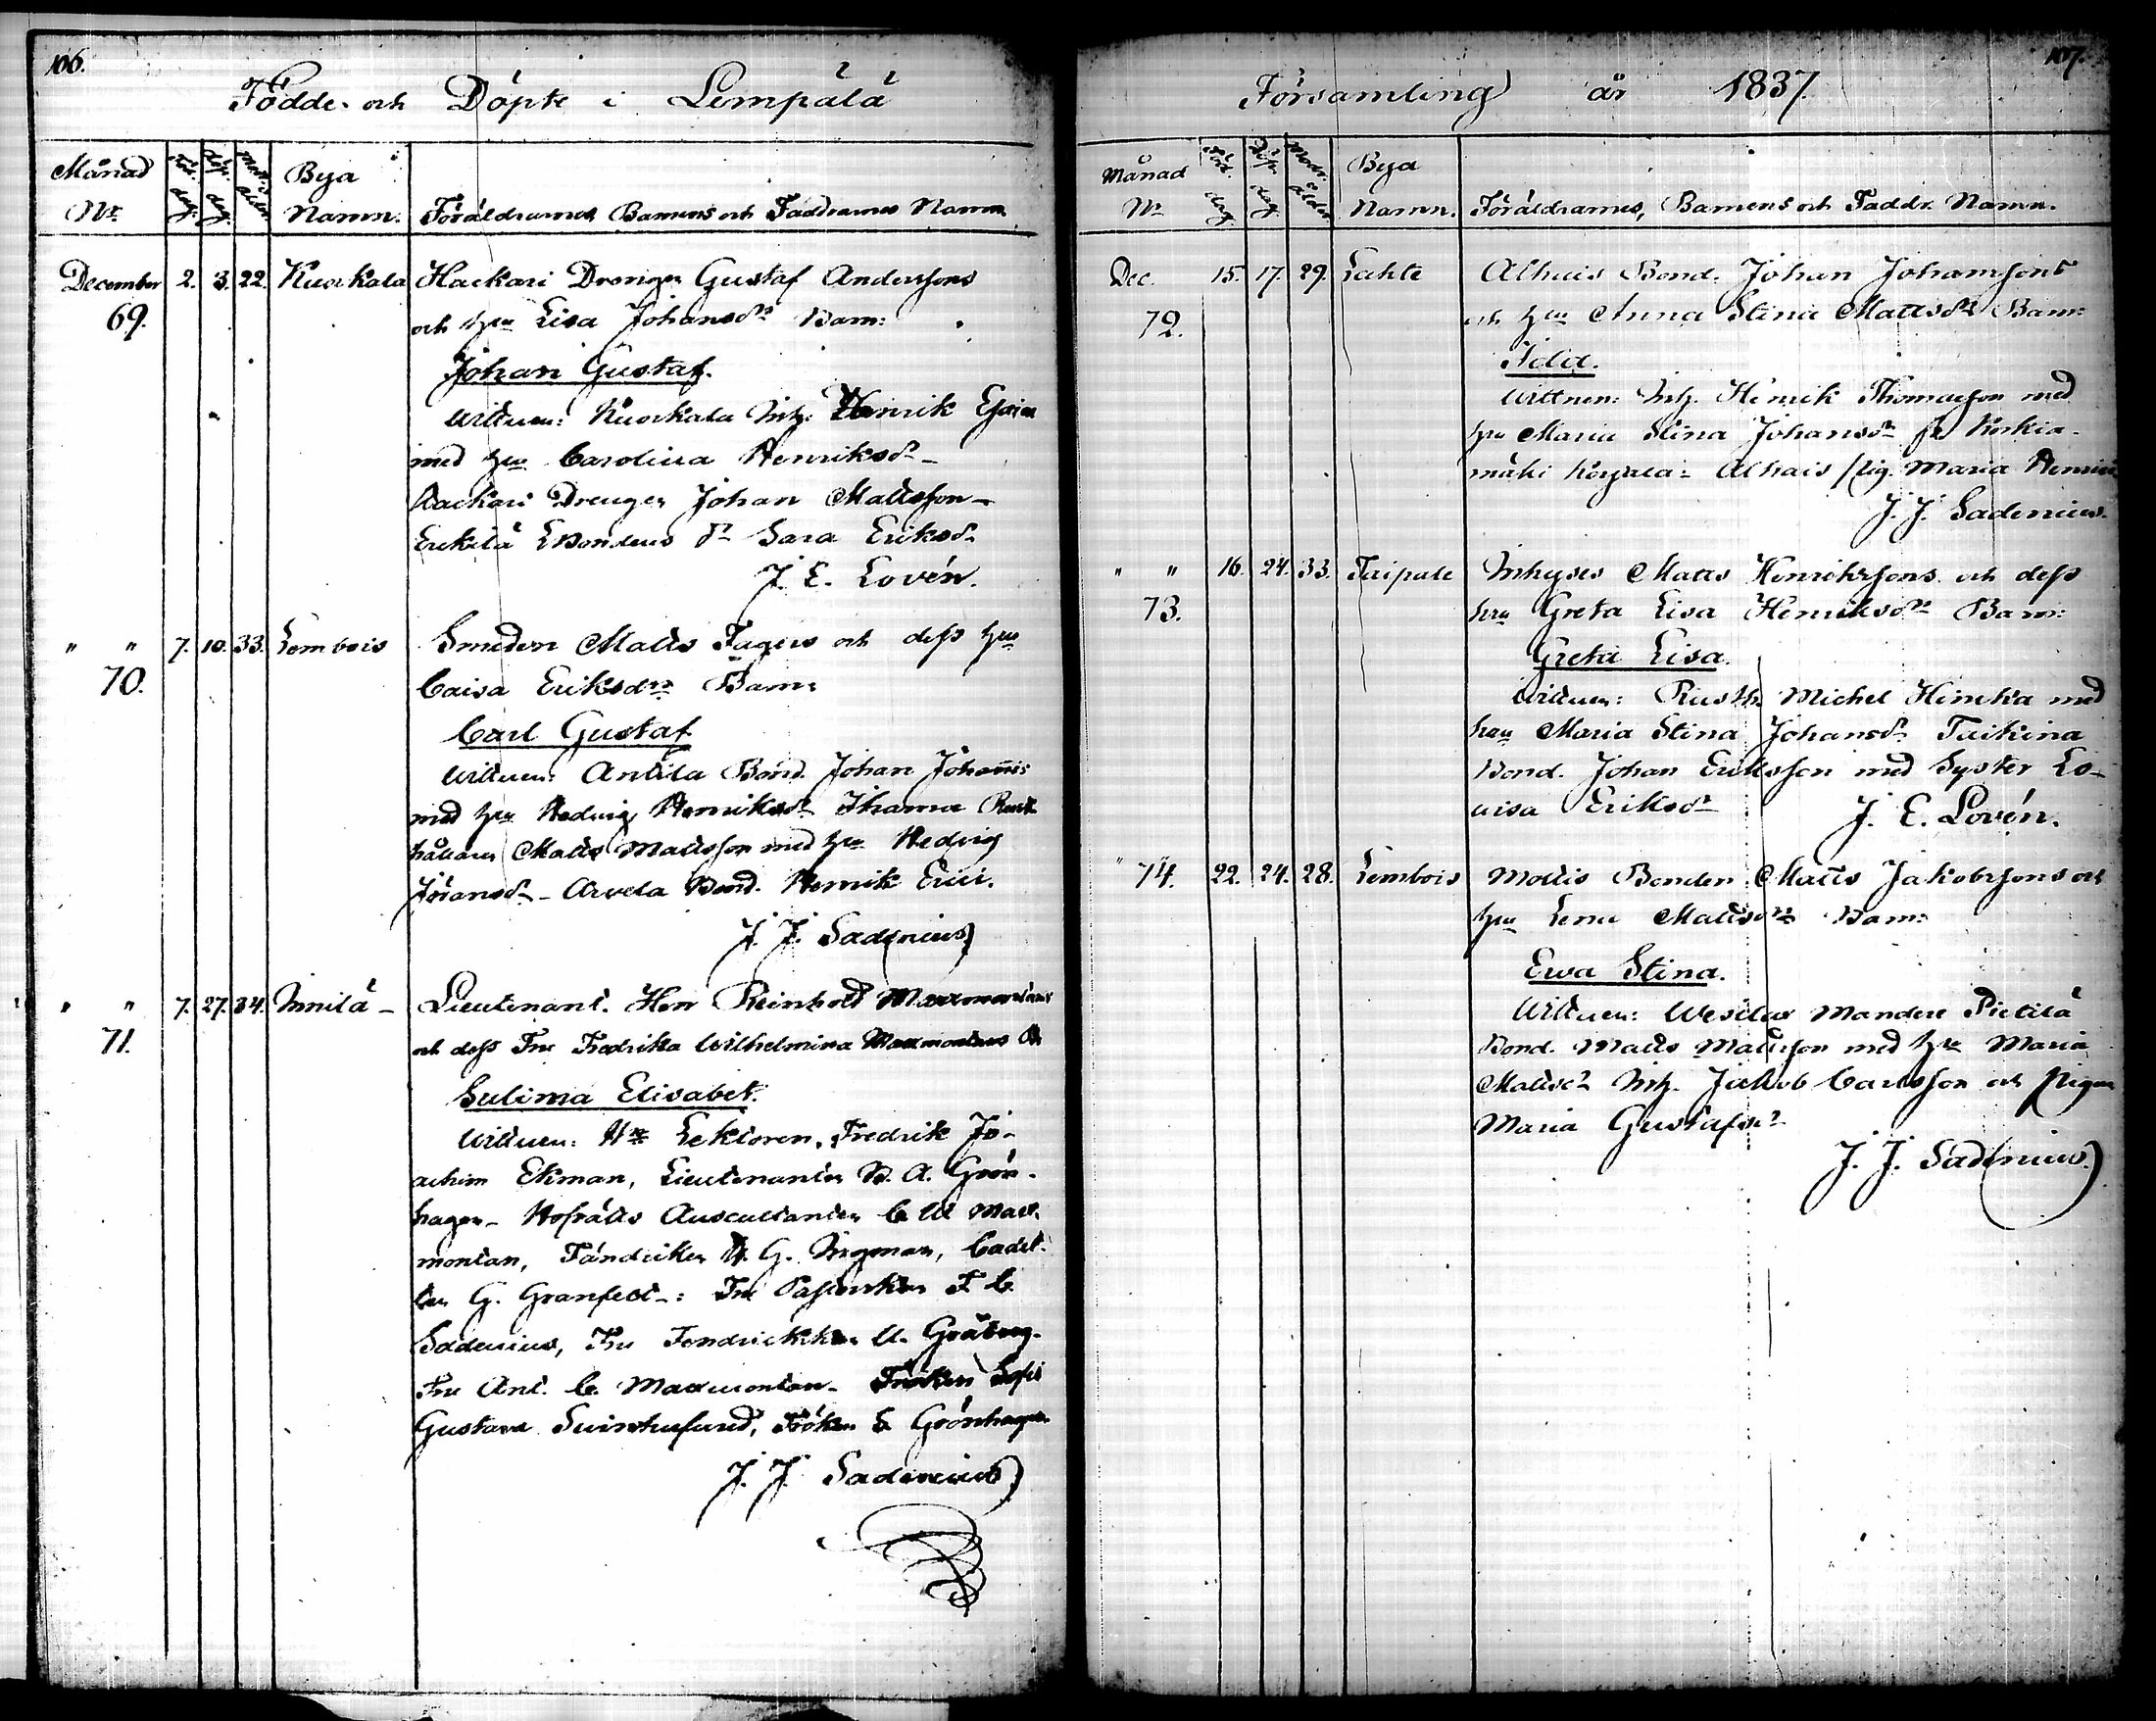 106.
Födde och Döpte i Lempälä
Månad Föd. dag. Döp. dag. Modr. ålder Bya
No Namn. Föräldrarnes, Barnens och Faddrarnes Namn
December 2. 3. 22. Kuorkala Hackari Drengen Gustaf Anderssons
69. och hu Lisa Johansdrs Barn:
Johan Gustaf.
Wittnen: Kuorkala Inh: Henrik Esaias
med hu Carolina Henriksdr -
Hackari Drengen Johan Mattsson -
Erkilä Bondens dr Sara Eriksdr
J. E. Lovén.
" " 7. 10. 33. Lembois Smeden Matts Fagers och dess hu
70. Caisa Eriksdrs Barn:
Carl Gustaf
Wittnen: Anttila Bond. Johan Johannis
med hu Hedvig Henriksdr Ihama Rust-
hållaren Matts Mattsson med hu Hedvig
Göransdr - Arvela Bond. Henrik Erici.
J. J. Sadenius
" " 7. 27. 34. Innilä - Lieutenant. Herr Reinhold Maxmontans
71. och dess Fru Fredrika Wilhelmina Maxmontans
Sulima Elisabet.
Wittnen: Hrr Lektoren, Fredrik Jo-
achim Ekman, Lieutenanten A. Grön-
hagen - Hofrätts Auscultanten C W Max-
montan, Fändriken G. Ingman, Cadet-
ten G. Granfelt -: Fru Pastorskan F C.
Sadenius, Fru Fendrickskan U. Gråberg -
Fru Ant. C. Maxmontan - Fröken Sofi
Gustava Svinhufvud, Fröken Grönhagen
J. J. Sadenius
107.
Församling år 1837.
Månad Föd. dag Döp. dag Modr. ålder Bya
No Namn. Föräldrarnes, Barnens och Faddr. Namn.
Dec. 15. 17. 29. Lahte Alhais Bond. Johan Johanssons
72. och hu Anna Stina Mattsdrs Barn:
Ida.
Wittnen: Inh. Henrik Thomasson med
hu Maria Stina Johansdr fr Koskia-
mäki Alhais pig. Maria
J. J. Sadenius.
" " 16. 24. 33. Taipale Inhyses Matts Henrikssons och dess
73. hru Greta Lisa Henriksdrs Barn:
Greta Lisa.
Wittnen: Rusth. Michel Himka med
hru Maria Stina Johansdr Taikina
Bond. Johan Eriksson med Syster Lo-
visa Eriksdr J. E. Lovén.
" 74. 22. 24. 28. Lembois Mattis Bonden Matts Jakobssons och
hu Lena Mattsdrs Barn:
Ewa Stina.
Wittnen: Mandere Pietilä
Bond. Matts Mattsson med hu Maria
Mattsdr Inh. Jakob Carlsson och Pigan
Maria Gustafsdr
J. J. Sadenius.